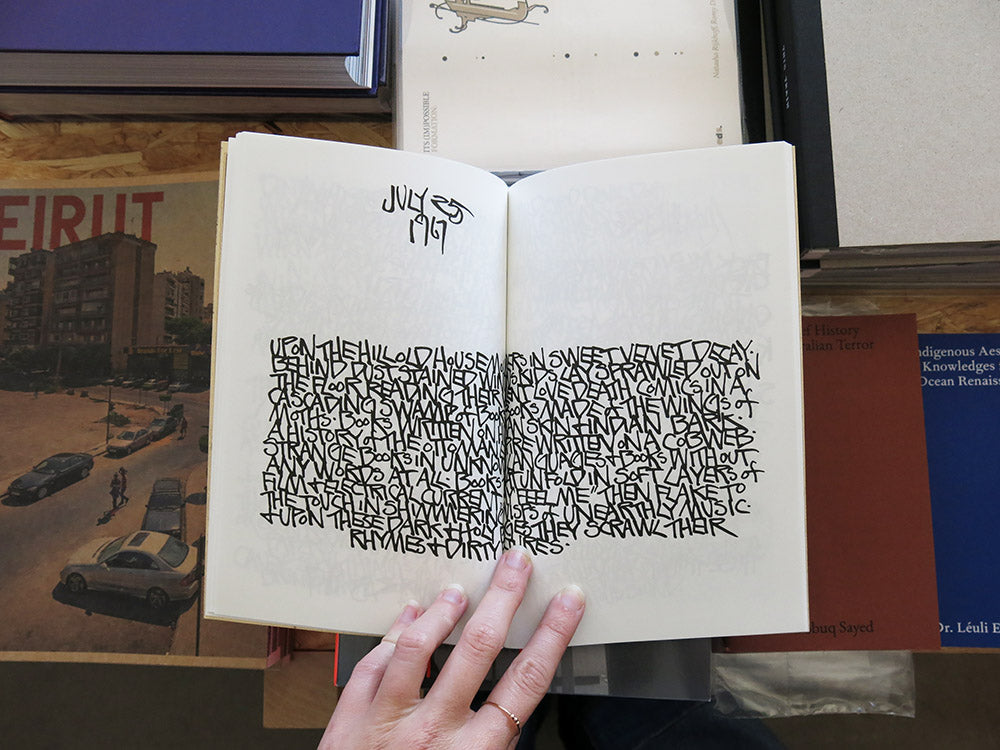 ITS (IM)POSSIBLE
FORMATION.
EIRUT
JULY 25
1967
UPON THE HILL OLD HOUSE IN SWEET VELVET DECAY.
BEHIND DUST STAINED BOYS LAY SPRAWLED OUT ON
THE FLOOR READING THEIR LOVE DEATH COMICS IN A
CASCADING SWAMP of BOOKS. BOOKS MADE of THE WINGS of
MOTHS. BOOKS WRITTEN ON SKIN + INDIAN BARK.
A HISTORY of THE OTTOMAN WRITTEN ON A COBWEB.
STRANGE BOOKS IN UNKNOWN LANGUAGES + BOOKS WITHOUT
ANY WORDS AT ALL. BOOKS UNFOLD IN SOFT LAYERS of
FILM + ELECTRICAL CURRENT. "FEEL ME" THEN FLAKE TO
THE TOUCH IN SHIMMERING + UNEARTHLY MUSIC.
+ UPON THESE DARK + HOLY THEY SCRAWL THEIR
RHYMES + DIRTY
ef History
ralian Terror
buq Sayed
ndigenous Aes
Knowledges
Ocean Renaiss
Dr. Léuli E